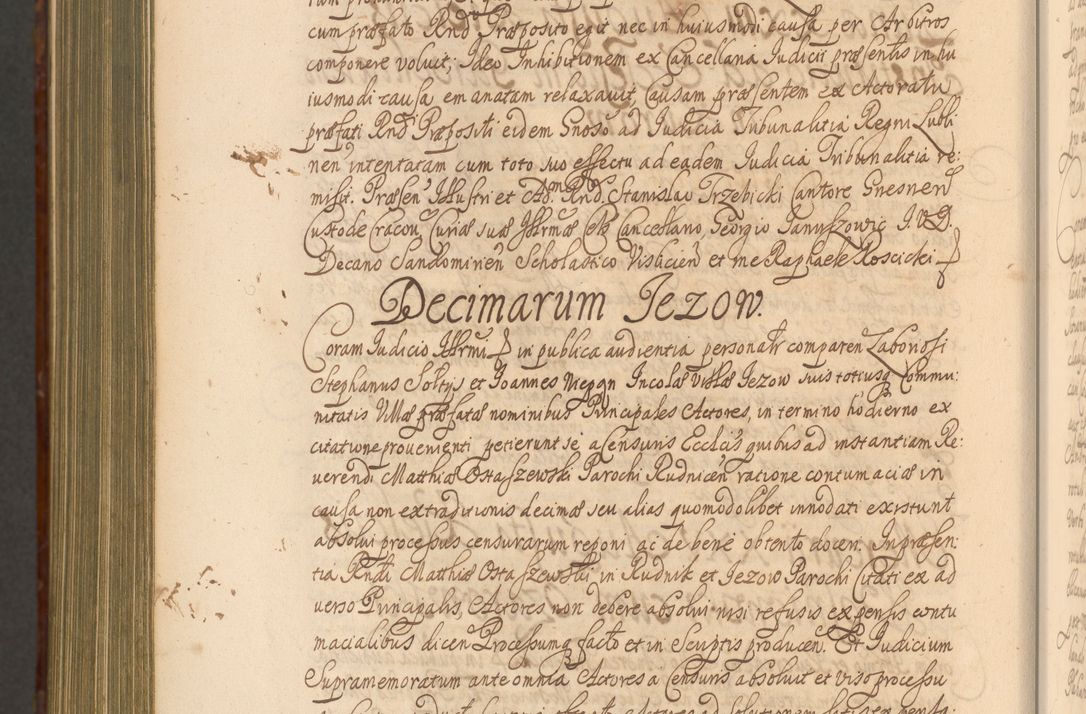 cum præfato Rnd Præposito egit nec in huiusmodi causa per Arbitros
componere voluit; Ideo Inhibitionem ex Cancellaria Iudicii præsentis in hu
iusmodi causa emanatam relaxavit, causam præsentem ex Actoratu
præfati Rndi Præpositi eidem Gnoso ad Iudicia Tribunalitia Regni Lubli
nen intentatam cum toto suo effectu ad eadem Iudicia Tribunalitia re:
misit. Præsen Illustri et Adm Rnd. Stanislao Trzebicki Cantore Gnesnen
Custode Cracou, Curiæ suæ Illrmæ Cels Cancellario, Georgio Januszowic I.V.D.
Decano Sandomirien Scholastico Vislicien et me Raphaele Koscicki
Decimarum Jezow.
Coram Iudicio Illrmi in publica audientia personalr comparen Laboriosi
Stephanus Soltys et Ioannes Incolæ Villæ Jezow suis totiusq Commu:
nitatis Villæ præfatæ nominibus Principales Actores, in termino hodierno ex
citatione provenienti petierunt se a Censuris Ecclcis quibus ad instantiam Re:
verendi Matthiæ Ostaszewski Parochi Rudnicen ratione contumaciæ in
causa non extraditionis decimæ seu alias quomodolibet innodati existunt
absolui processus censurarum reponi ac de bene obtento docen. In præsen:
tia Rndi Matthiæ Ostaszewski in Rudnik et Jezow Parochi Citati ex ad
verso Principalis, Actores non debere absolui nisi refusis expensis contu
macialibus dicen Processumq facto et in Scriptis producen. Et Iudicium
Supramemoratum ante omnia Actores a Censuris absoluit et viso processu